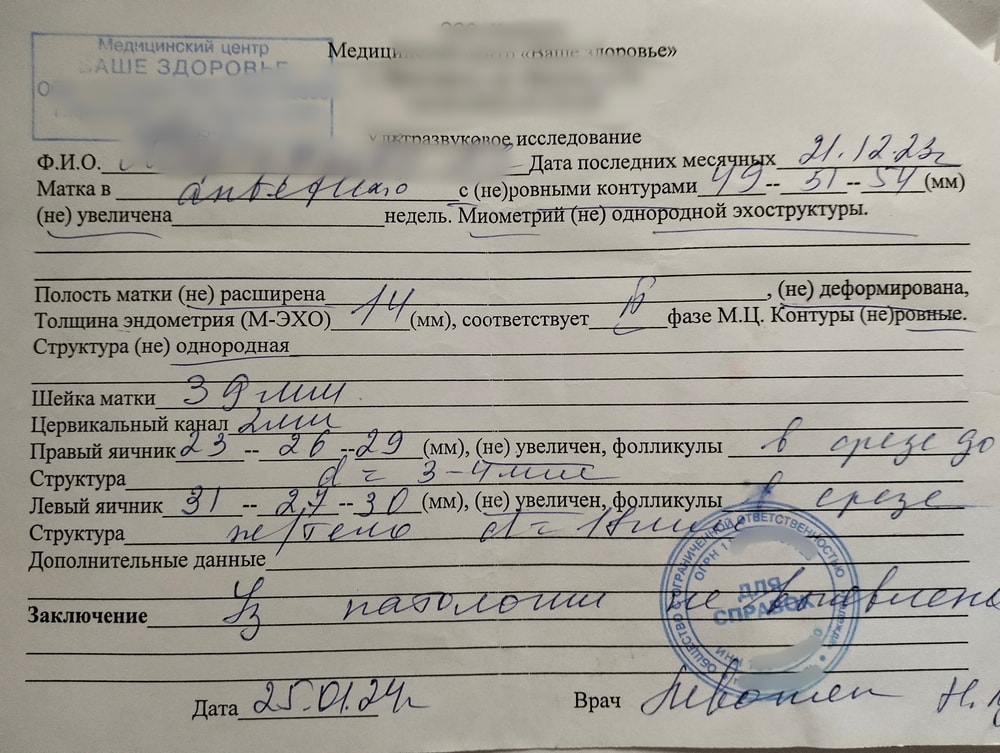 Медицинский центр
ВАШЕ ЗДОРОВЬЕ
«Ваше здоровье»
Ультразвуковое исследование
Ф.И.О. Дата последних месячных 21.12.23г
Матка в антефлехио с (не)ровными контурами 49 -- 51 -- 54 (мм)
(не) увеличена недель. Миометрий (не) однородной эхоструктуры.
Полость матки (не) расширена , (не) деформирована,
Толщина эндометрия (М-ЭХО) 14 (мм), соответствует фазе М.Ц. Контуры (не)ровные.
Структура (не) однородная
Шейка матки 39 мм
Цервикальный канал 2мм
Правый яичник 23 -- 26 -- 29 (мм), (не) увеличен, фолликулы в срезе до
Структура d = 3-4мм
Левый яичник 31 -- 27 -- 30 (мм), (не) увеличен, фолликулы в срезе
Структура ж/тело d = 18мм
Дополнительные данные
Заключение Уз патологии не выявлено
ОБЩЕСТВО С ОГРАНИЧЕННОЙ ОТВЕТСТВЕННОСТЬЮ
ОГРН 1
ДЛЯ СПРАВОК
ИНН
Дата 25.01.24г Врач